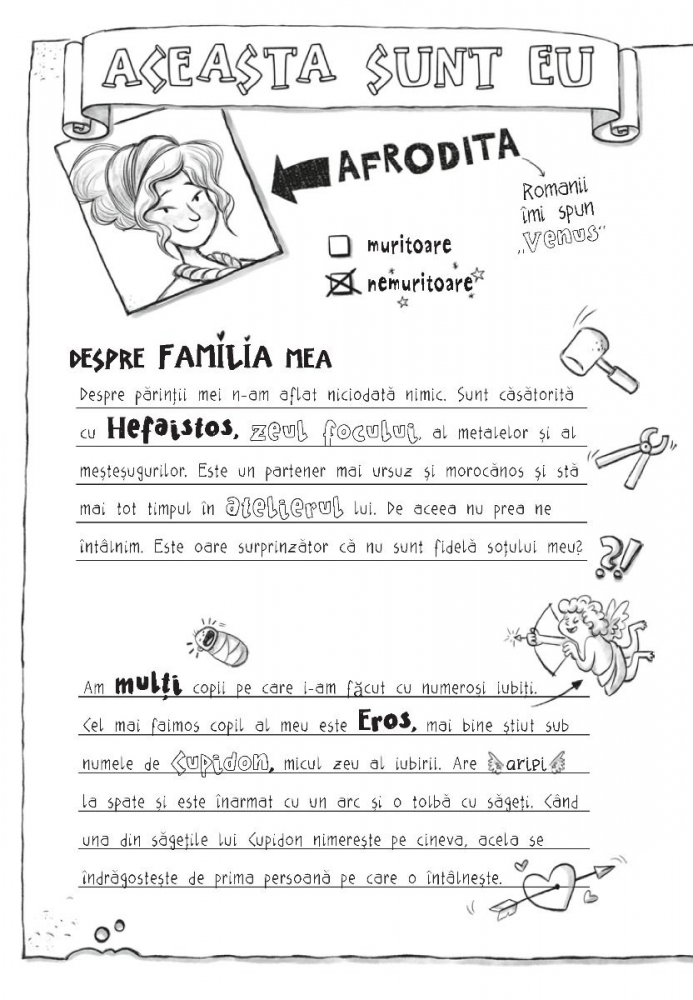 ACEASTA SUNT EU
AFRODITA
Romanii
îmi spun
„Venus“
muritoare
nemuritoare
DESPRE FAMILIA MEA
Despre părinții mei n-am aflat niciodată nimic. Sunt căsătorită
cu Hefaistos, zeul focului, al metalelor și al
meșteșugurilor. Este un partener mai ursuz și morocănos și stă
mai tot timpul în atelierul lui. De aceea nu prea ne
întâlnim. Este oare surprinzător că nu sunt fidelă soțului meu?
?!
Am mulți copii pe care i-am făcut cu numeroși iubiți.
Cel mai faimos copil al meu este Eros, mai bine știut sub
numele de Cupidon, micul zeu al iubirii. Are aripi
la spate și este înarmat cu un arc și o tolbă cu săgeți. Când
una din săgețile lui Cupidon nimerește pe cineva, acela se
îndrăgostește de prima persoană pe care o întâlnește.